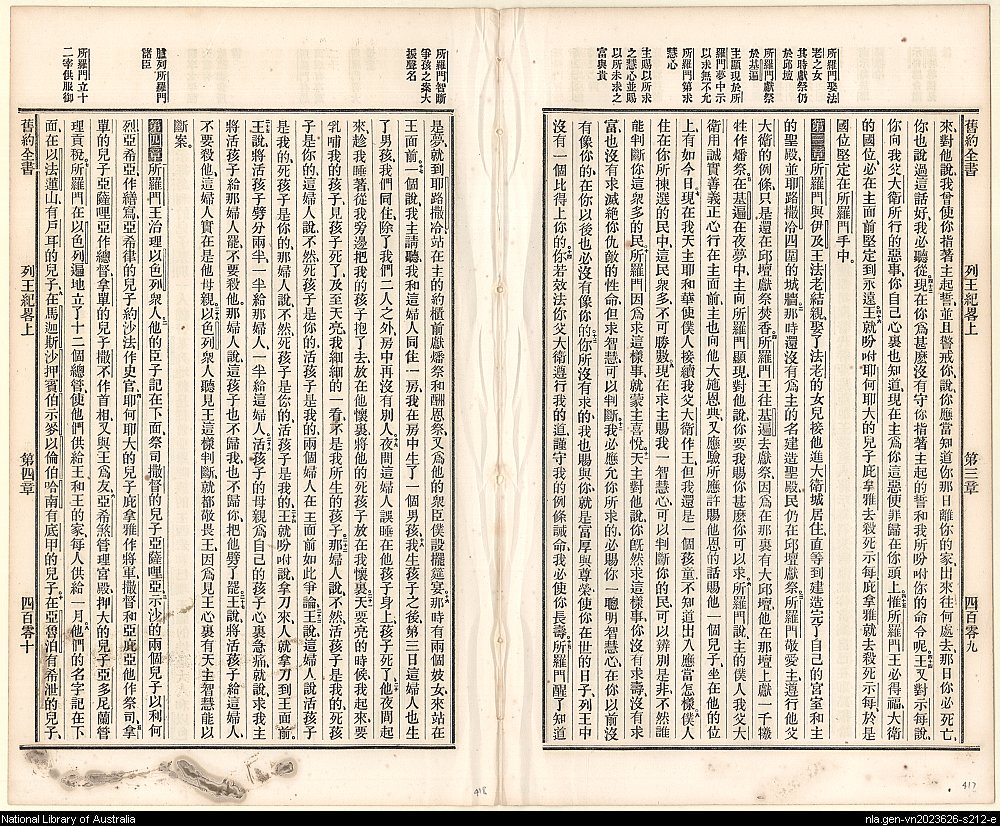 所羅門娶法
老之女
其時獻祭仍
於邱壇
所羅門獻祭
於基遍
主顯現於所
羅門夢中示
以求無不允
所羅門第求
慧心
主賜以所求
之慧心並賜
以所未求之
富與貴
舊約全書 列王紀畧上 第三章 四百零九
來對他說我曾使你指著主起誓並且警戒你說你應當知道你那日離你的家出來往何處去那日你必死亡、
你也對我說過這話好我必聽從現在你為甚麼沒有守你指著主起的誓和我所吩咐你的命令呢王又對示每說、
你向我父大衛所行的惡事你自己心裏也知道現在主為你這惡使罪歸在你頭上惟所羅門王必得福大衛
的國位必在主面前堅定到永遠王就吩咐耶何耶大的兒子庇拿雅去殺死示每庇拿雅就去殺死示每於是
國位堅定在所羅門手中。
第三章所羅門與伊及王法老結親娶了法老的女兒接他進大衛城居住直等到建造完了自己的宮室和主
的聖殿並耶路撒冷四圍的城牆那時還沒有為主的名建造聖殿民仍在邱壇獻祭所羅門敬愛主遵行他父
大衛的例條只是還在邱壇獻祭焚香所羅門王往基遍去獻祭因為在那裏有大邱壇他在那壇上獻一千犧
牲作燔祭在基遍在夜夢中主向所羅門顯現對他說你要我賜你甚麼你可以求所羅門說主的僕人我父大
衛用誠實善義正心行在主面前主也向他大施恩典又應驗所應許賜他恩的話賜他一個兒子坐在他的位
上有如今日現在我天主耶和華使僕人接續我父大衛作王但我還是一個孩童不知道出入應當怎樣僕人
住在你所揀選的民中這民衆多不可勝數現在求主賜我一智慧心可以判斷你的民可以辨別是非不然誰
能判斷你這衆多的民所羅門因為求這樣事就蒙主喜悅天主對他說你旣然求這樣事你沒有求壽沒有求
富也沒有求滅絕你仇敵的性命但求智慧可以判斷我必應允你所求的必賜你一聰明智慧心在你以前沒
有像你的在你以後也必沒有像你的你所沒有求的我也賜與你就是富厚與尊榮使你在世的日子列王中
沒有一個比得上你的你若效法你父大衛遵行我的道謹守我的例條誡命我必使你長壽所羅門醒了知道
所羅門智斷
爭孩之案大
振聲名
臚列所羅門
諸臣
所羅門立十
二宰供服御
是夢就到耶路撒冷站在主的約櫃前獻燔祭和酬恩祭又為他的衆臣僕設擺筵宴那時有兩個妓女來站在
王面前一個說我主請聽我和這婦人同住一房我在房中生了一個男孩我生孩子之後第三日這婦人也生
了男孩我們同住除了我們二人之外房中再沒有別人夜間這婦人誤睡在他孩子身上孩子死了他夜間起
來趁我睡著從我旁邊把我的孩子抱了去放在他懷裏將他的死孩子放在我懷裏天要亮的時候我起來要
乳哺我的孩子見孩子死了及至天亮我細細的一看不是我所生的孩子那婦人說不然活孩子是我的死孩
子是你的這婦人說不然死孩子是你的活孩子是我的兩個婦人在王面前如此爭論王說這婦人說活孩子
是我的死孩子是你的那婦人說不然死孩子是你的活孩子是我的王就吩咐說拿刀來人就拿刀到王面前
王說將活孩子劈分兩半一半給那婦人一半給這婦人活孩子的母親為自己的孩子心裏急痛就說求我主
將活孩子給那婦人罷不要殺他那婦人說這孩子也不歸我也不歸你把他劈了罷王說將活孩子給這婦人、
不要殺他這婦人實在是他母親以色列衆人聽見王這樣判斷就都敬畏王因為見王心裏有天主智慧能以
斷案。
第四章所羅門王治理以色列衆人他的臣子記在下面祭司撒督的兒子亞薩哩亞示沙的兩個兒子以利何
烈亞希亞作繕寫亞希律的兒子約沙法作史官耶何耶大的兒子庇拿雅作將軍撒督和亞庇亞他作祭司拿
單的兒子亞薩哩亞作總督拿單的兒子撒不作首相又與王為友亞希煞管理宮殿押大的兒子亞多尼蘭管
理貢稅所羅門在以色列遍地立了十二個總管使他們供給王和王的家每人供給一月他們的名字記在下
面在以法蓮山有戶耳的兒子在馬迦斯沙押賓伯示麥以倫伯哈南有底甲的兒子在亞魯泊有希泄的兒子、
舊約全書 列王紀畧上 第四章 四百零十
418
417
National Library of Australia
nla.gen-vn2023626-s212-e